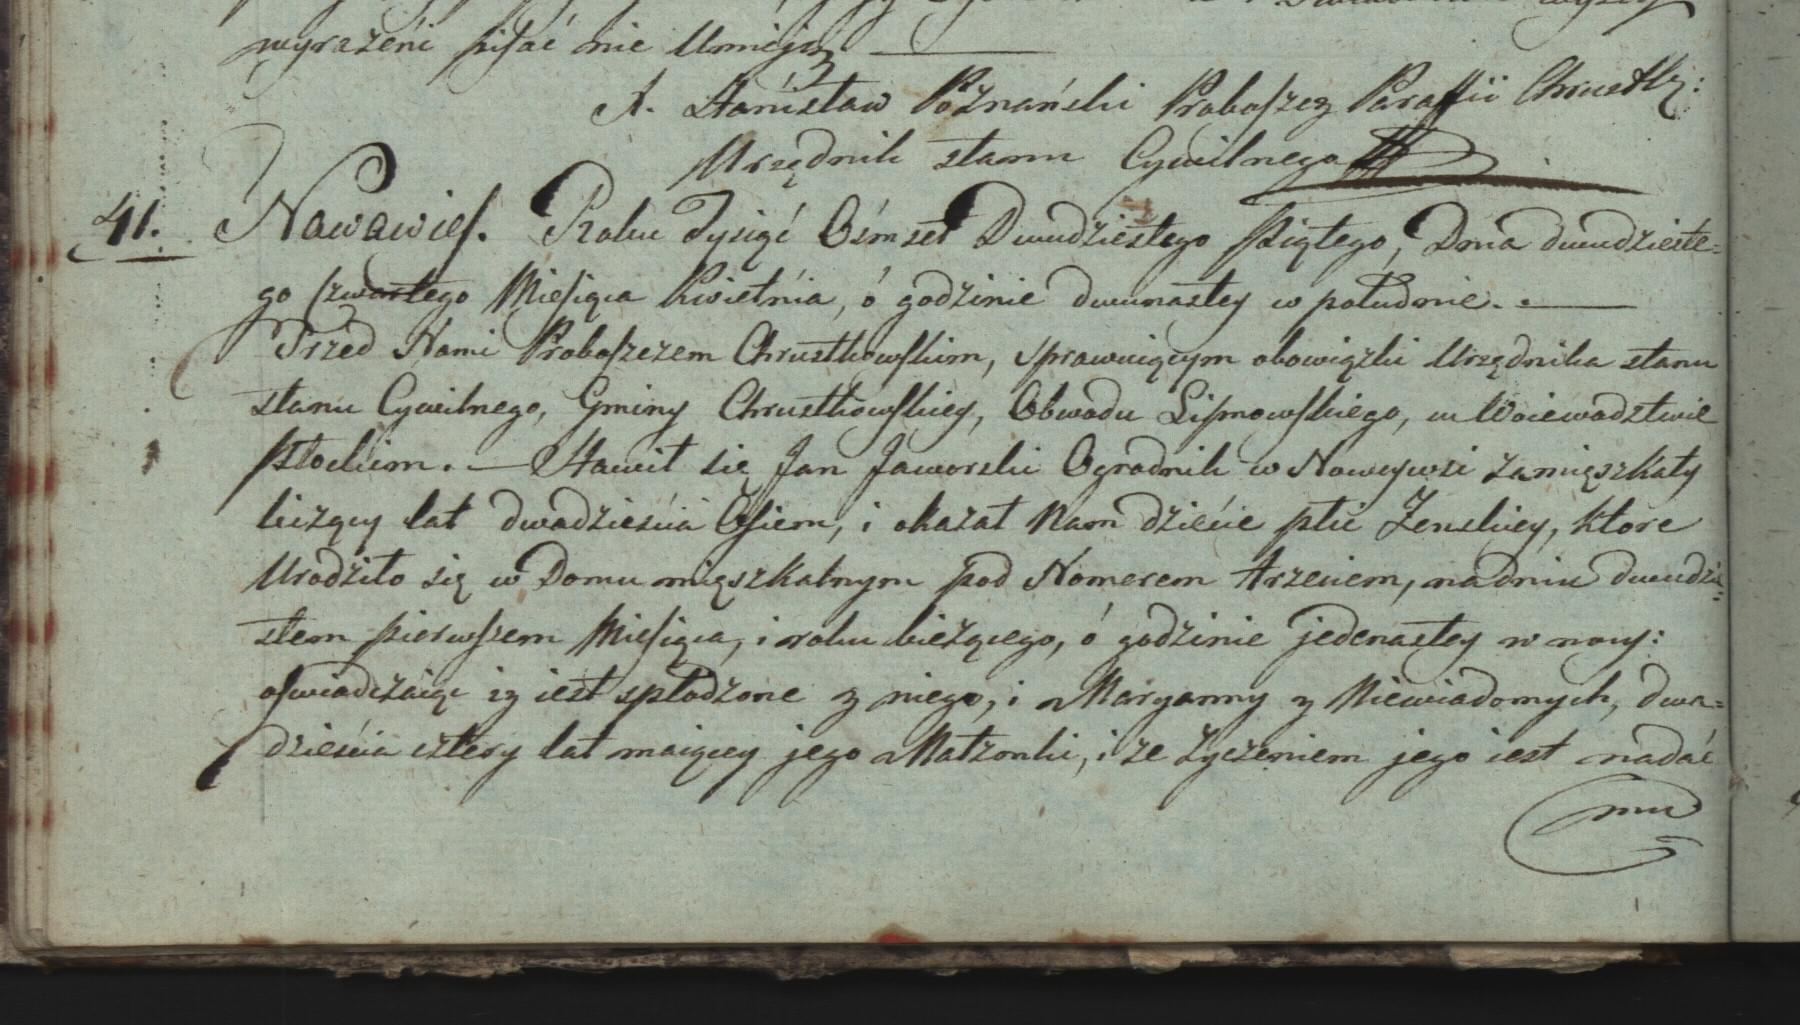 wyrażeni pisać nie Umieją
X. Stanisław Poznański Proboszcz Paraffii Chrustk:
Urzędnik stanu Cywilnego
41. Nawawieś. Roku Tysiąć Ośmset Dwudziestego Piątego, Dnia dwudzieste=
go czwartego Miesiąca Kwietnia, ó godzinie dwunastey w południe. —
Przed Nami Proboszczem Chrustkowskim, sprawuiącym obowiązki Urzędnika stanu
stanu Cywilnego, Gminy Chrustkowskiey, Obwodu Lipnowskiego, w Woiewodztwie
Płockim. — Stawił się Jan Jaworski Ogrodnik w Noweywsi zamięszkały
liczący lat dwadzieścia Osiem, i okazał Nam dziecie płci Zenskiey, które
Urodziło się w Domu mięszkalnym pod Nomerem trzeciem, na dniu dwudzie=
stem pierwszem Miesiąca, i roku bieżącego, ó godzinie jedenastey w nocy:
oswiadczaiąc iz iest spłodzone z niego, i Maryanny z Niewiadomych, dwa=
dzieścia cztery lat maiącey jego Małzonki, i ze zyczeniem jego iest nadać
mu